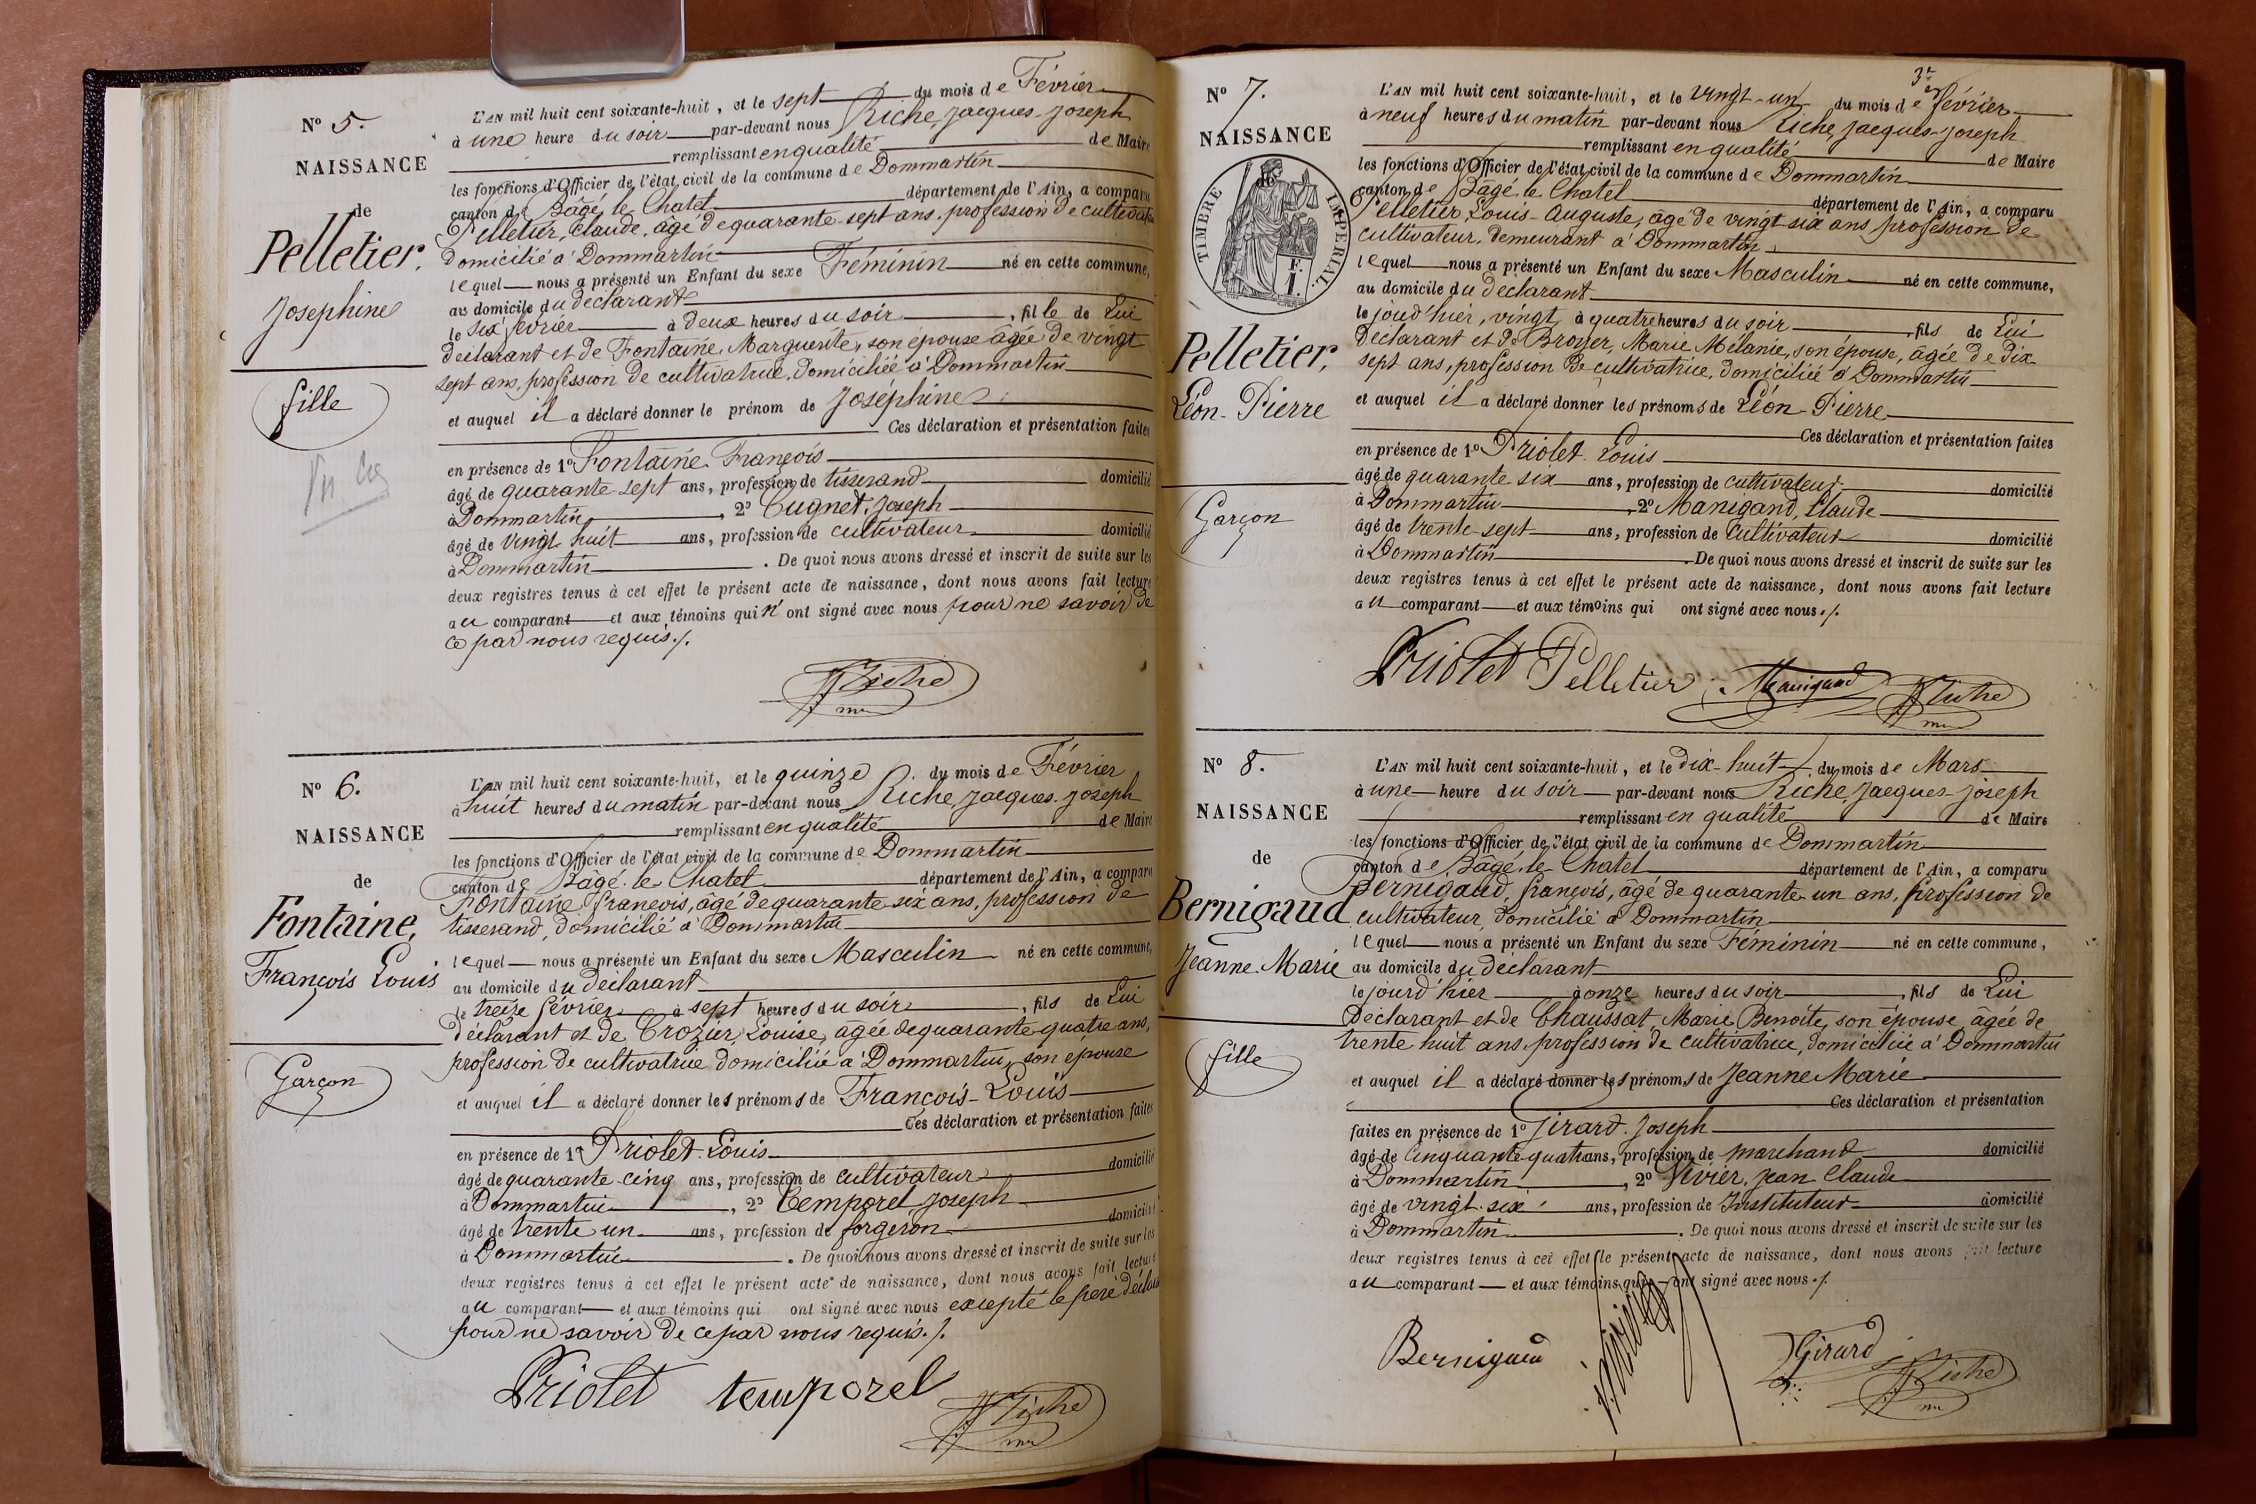 N° 5.
NAISSANCE
de
Pelletier,
Josephine
fille
L'AN mil huit cent soixante-huit, et le sept du mois de Février
à une heure du soir par-devant nous Riche, Jacques-Joseph
remplissant en qualité de Maire
les fonctions d'Officier de l'état civil de la commune de Dommartin
canton de Bâgé le Chatel département de l'Ain, a comparu
Pelletier, Claude, âgé de quarante sept ans, profession de cultivateur
domicilié à Dommartin
lequel nous a présenté un Enfant du sexe Féminin né en cette commune,
au domicile du déclarant
le six février à deux heures du soir, fille de Lui
déclarant et de Fontaine, Marguerite, son épouse âgée de vingt
sept ans, profession de cultivatrice, domiciliée à Dommartin
et auquel il a déclaré donner le prénom de Joséphine
Ces déclaration et présentation faites
en présence de 1° Fontaine François
âgé de quarante sept ans, profession de tisserand domicilié
à Dommartin, 2° Cugnet, Joseph
âgé de vingt huit ans, profession de cultivateur domicilié
à Dommartin. De quoi nous avons dressé et inscrit de suite sur les
deux registres tenus à cet effet le présent acte de naissance, dont nous avons fait lecture
au comparant et aux témoins qui n'ont signé avec nous pour ne savoir de
ce par nous requis./.
JJ Riche
N° 6.
NAISSANCE
de
Fontaine,
François Louis
Garçon
L'AN mil huit cent soixante-huit, et le quinze du mois de Février
à huit heures du matin par-devant nous Riche, Jacques-Joseph
remplissant en qualité de Maire
les fonctions d'Officier de l'état civil de la commune de Dommartin
canton de Bâgé-le-Chatel département de l'Ain, a comparu
Fontaine François, âgé de quarante six ans, profession de
tisserand, domicilié à Dommartin
lequel nous a présenté un Enfant du sexe Masculin né en cette commune,
au domicile du déclarant
le treize février à sept heures du soir, fils de Lui
déclarant et de Crozier, Louise, âgée de quarante-quatre ans,
profession de cultivatrice domiciliée à Dommartin, son épouse
et auquel il a déclaré donner les prénoms de François-Louis
Ces déclaration et présentation faites
en présence de 1° Priolet Louis
âgé de quarante-cinq ans, profession de cultivateur domicilié
à Dommartin, 2° Temporel Joseph
âgé de trente un ans, profession de forgeron domicilié
à Dommartin. De quoi nous avons dressé et inscrit de suite sur les
deux registres tenus à cet effet le présent acte de naissance, dont nous avons fait lecture
au comparant et aux témoins qui ont signé avec nous excepté le père
pour ne savoir de ce par nous requis./.
Priolet temporel JJ Riche
N° 7.
NAISSANCE
de
TIMBRE IMPÉRIAL
F.
1.
Pelletier,
Léon-Pierre
Garçon
3e
L'AN mil huit cent soixante-huit, et le vingt-un du mois de février
à neuf heures du matin par-devant nous Riche, Jacques-Joseph
remplissant en qualité de Maire
les fonctions d'Officier de l'état civil de la commune de Dommartin
canton de Bâgé le Chatel département de l'Ain, a comparu
Pelletier, Louis-Auguste, âgé de vingt-six ans profession de
cultivateur, demeurant à Dommartin,
lequel nous a présenté un Enfant du sexe Masculin né en cette commune,
au domicile du déclarant
le jour d'hier, vingt, à quatre heures du soir, fils de Lui
Déclarant et de Broyer, Marie Mélanie, son épouse, âgée de dix
sept ans, profession de cultivatrice, domiciliée à Dommartin
et auquel il a déclaré donner les prénoms de Léon-Pierre
Ces déclaration et présentation faites
en présence de 1° Priolet Louis
âgé de quarante six ans, profession de cultivateur domicilié
à Dommartin, 2° Manigand, Claude
âgé de trente-sept ans, profession de Cultivateur domicilié
à Dommartin. De quoi nous avons dressé et inscrit de suite sur les
deux registres tenus à cet effet le présent acte de naissance, dont nous avons fait lecture
au comparant et aux témoins qui ont signé avec nous./.
Priolet Pelletier Manigand JJ Riche
N° 8.
NAISSANCE
de
Bernigaud
Jeanne-Marie
fille
L'AN mil huit cent soixante-huit, et le dix-huit du mois de Mars
à une heure du soir par-devant nous Riche, Jacques-Joseph
remplissant en qualité de Maire
les fonctions d'Officier de l'état civil de la commune de Dommartin
canton de Bâgé-le-Chatel département de l'Ain, a comparu
Bernigaud, françois, âgé de quarante-un ans, profession de
cultivateur, domicilié à Dommartin
lequel nous a présenté un Enfant du sexe Féminin né en cette commune,
au domicile du déclarant
le jourd'hier à onze heures du soir, fils de Lui
Déclarant et de Chaussat, Marie Benoîte, son épouse, âgée de
trente huit ans, profession de cultivatrice, domiciliée à Dommartin
et auquel il a déclaré donner les prénoms de Jeanne Marie
Ces déclaration et présentation
faites en présence de 1° Girard Joseph
âgé de Cinquante-quatre ans, profession de marchand domicilié
à Dommartin, 2° Vivier, Jean Claude
âgé de vingt-six ans, profession de Instituteur domicilié
à Dommartin. De quoi nous avons dressé et inscrit de suite sur les
deux registres tenus à cet effet le présent acte de naissance, dont nous avons fait lecture
au comparant et aux témoins qui ont signé avec nous./.
Bernigaud J. Vivier Girard JJ Riche